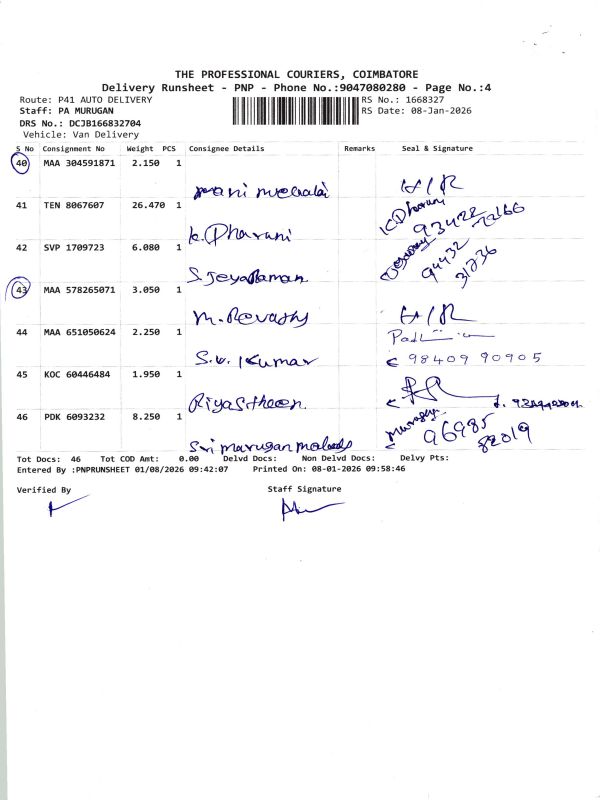 THE PROFESSIONAL COURIERS, COIMBATORE
Delivery Runsheet - PNP - Phone No.:9047080280 - Page No.:4
Route: P41 AUTO DELIVERY RS No.: 1668327
Staff: PA MURUGAN RS Date: 08-Jan-2026
DRS No.: DCJB166832704
Vehicle: Van Delivery
S No Consignment No Weight PCS Consignee Details Remarks Seal & Signature
40 MAA 304591871 2.150 1
mani mekalai H/R
41 TEN 8067607 26.470 1 K Dharani
K. Dharani 93422 72166
42 SVP 1709723 6.080 1
S. Jeyaraman 94432 31736
43 MAA 578265071 3.050 1
M. Revathy H/R
44 MAA 651050624 2.250 1
S.V. Kumar 98409 90905
45 KOC 60446484 1.950 1
Riyastheen
46 PDK 6093232 8.250 1 murugan 96985 82019
Sri murugan
Tot Docs: 46 Tot COD Amt: 0.00 Delvd Docs: Non Delvd Docs: Delvy Pts:
Entered By :PNPRUNSHEET 01/08/2026 09:42:07 Printed On: 08-01-2026 09:58:46
Verified By Staff Signature